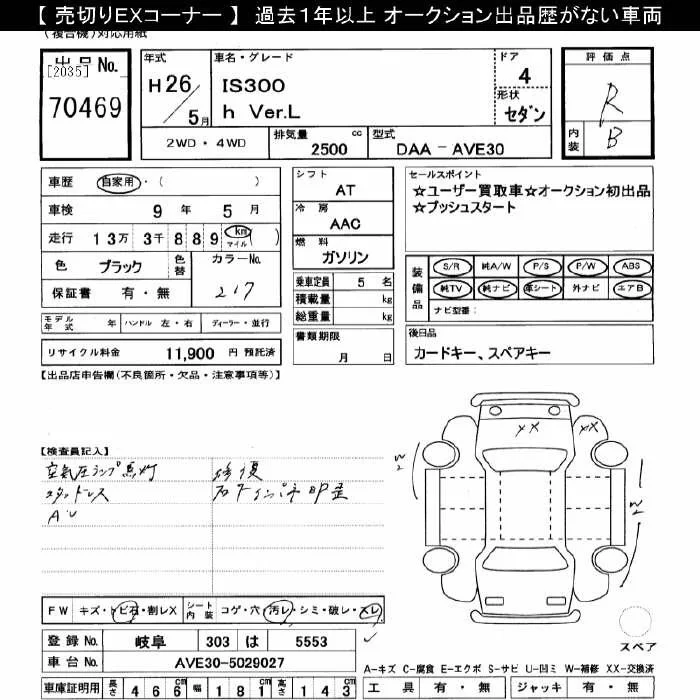 【 売切りEXコーナー 】 過去１年以上 オークション出品歴がない車両
(複合機)対応用紙
出品No.
[2035]
70469
年式
H26/5月
車名・グレード
IS300
h Ver.L
ドア
4
形状
セダン
評価点
R
内装
B
2WD・4WD
排気量 cc
2500
型式
DAA－AVE30
車歴 自家用・( )
車検 9年 5月
走行 13万 3千 889 km マイル ( )
色 ブラック 色替 カラーNo.
217
保証書 有・無
シフト
AT
冷房
AAC
燃料
ガソリン
乗車定員 5 名
積載量 kg
総重量 kg
書類期限
月 日
セールスポイント
☆ユーザー買取車☆オークション初出品
☆プッシュスタート
装備品
S/R 純A/W P/S P/W ABS
純TV 純ナビ 革シート 外ナビ エアB
ナビ型番：
モデル年式 年 ハンドル 左・右 ディーラー・並行
リサイクル料金 11,900 円 預託済
後日品
カードキー、スペアキー
【出品店申告欄(不良箇所・欠品・注意事項等)】
【検査員記入】
空気圧ランプ点灯 修復
スタッドレス
AU
XX XX
W2 W2
FW キズ・トビ石・割レX シート内装 コゲ・穴・汚レ・シミ・破レ・スレ
登録No. 岐阜 303 は 5553
車台No. AVE30-5029027
スペア
A-キズ C-腐食 E-エクボ S-サビ U-凹ミ W-補修 XX-交換済
車庫証明用 長さ 466 幅 181 高さ 143
工具 有・無 ジャッキ 有・無